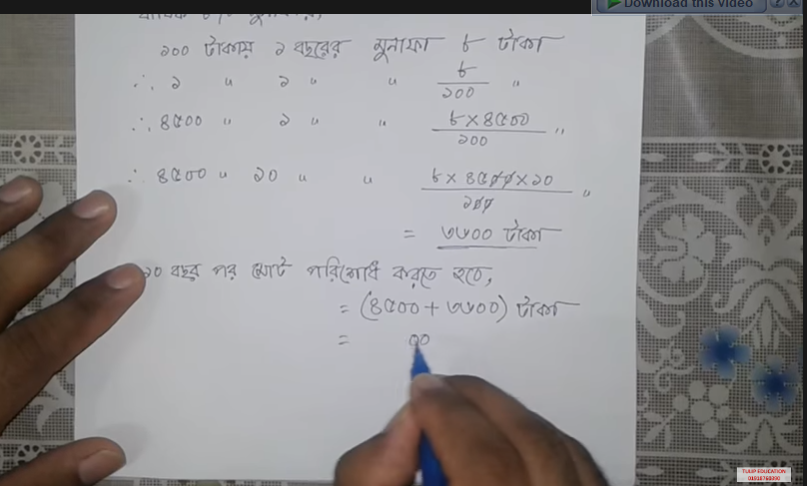 Download this video ? X
১০০ টাকায় ১ বছরের মুনাফা ৮ টাকা
∴ ১ " ১ " " ৮/১০০ "
∴ ৪৫০০ " ১ " " ৮×৪৫০০/১০০ "
∴ ৪৫০০ " ১০ " " ৮×৪৫০০×১০/১০০ "
= ৩৬০০ টাকা
১০ বছর পর মোট পরিশোধ করতে হবে,
= (৪৫০০+৩৬০০) টাকা
= ০০
TULIP EDUCATION